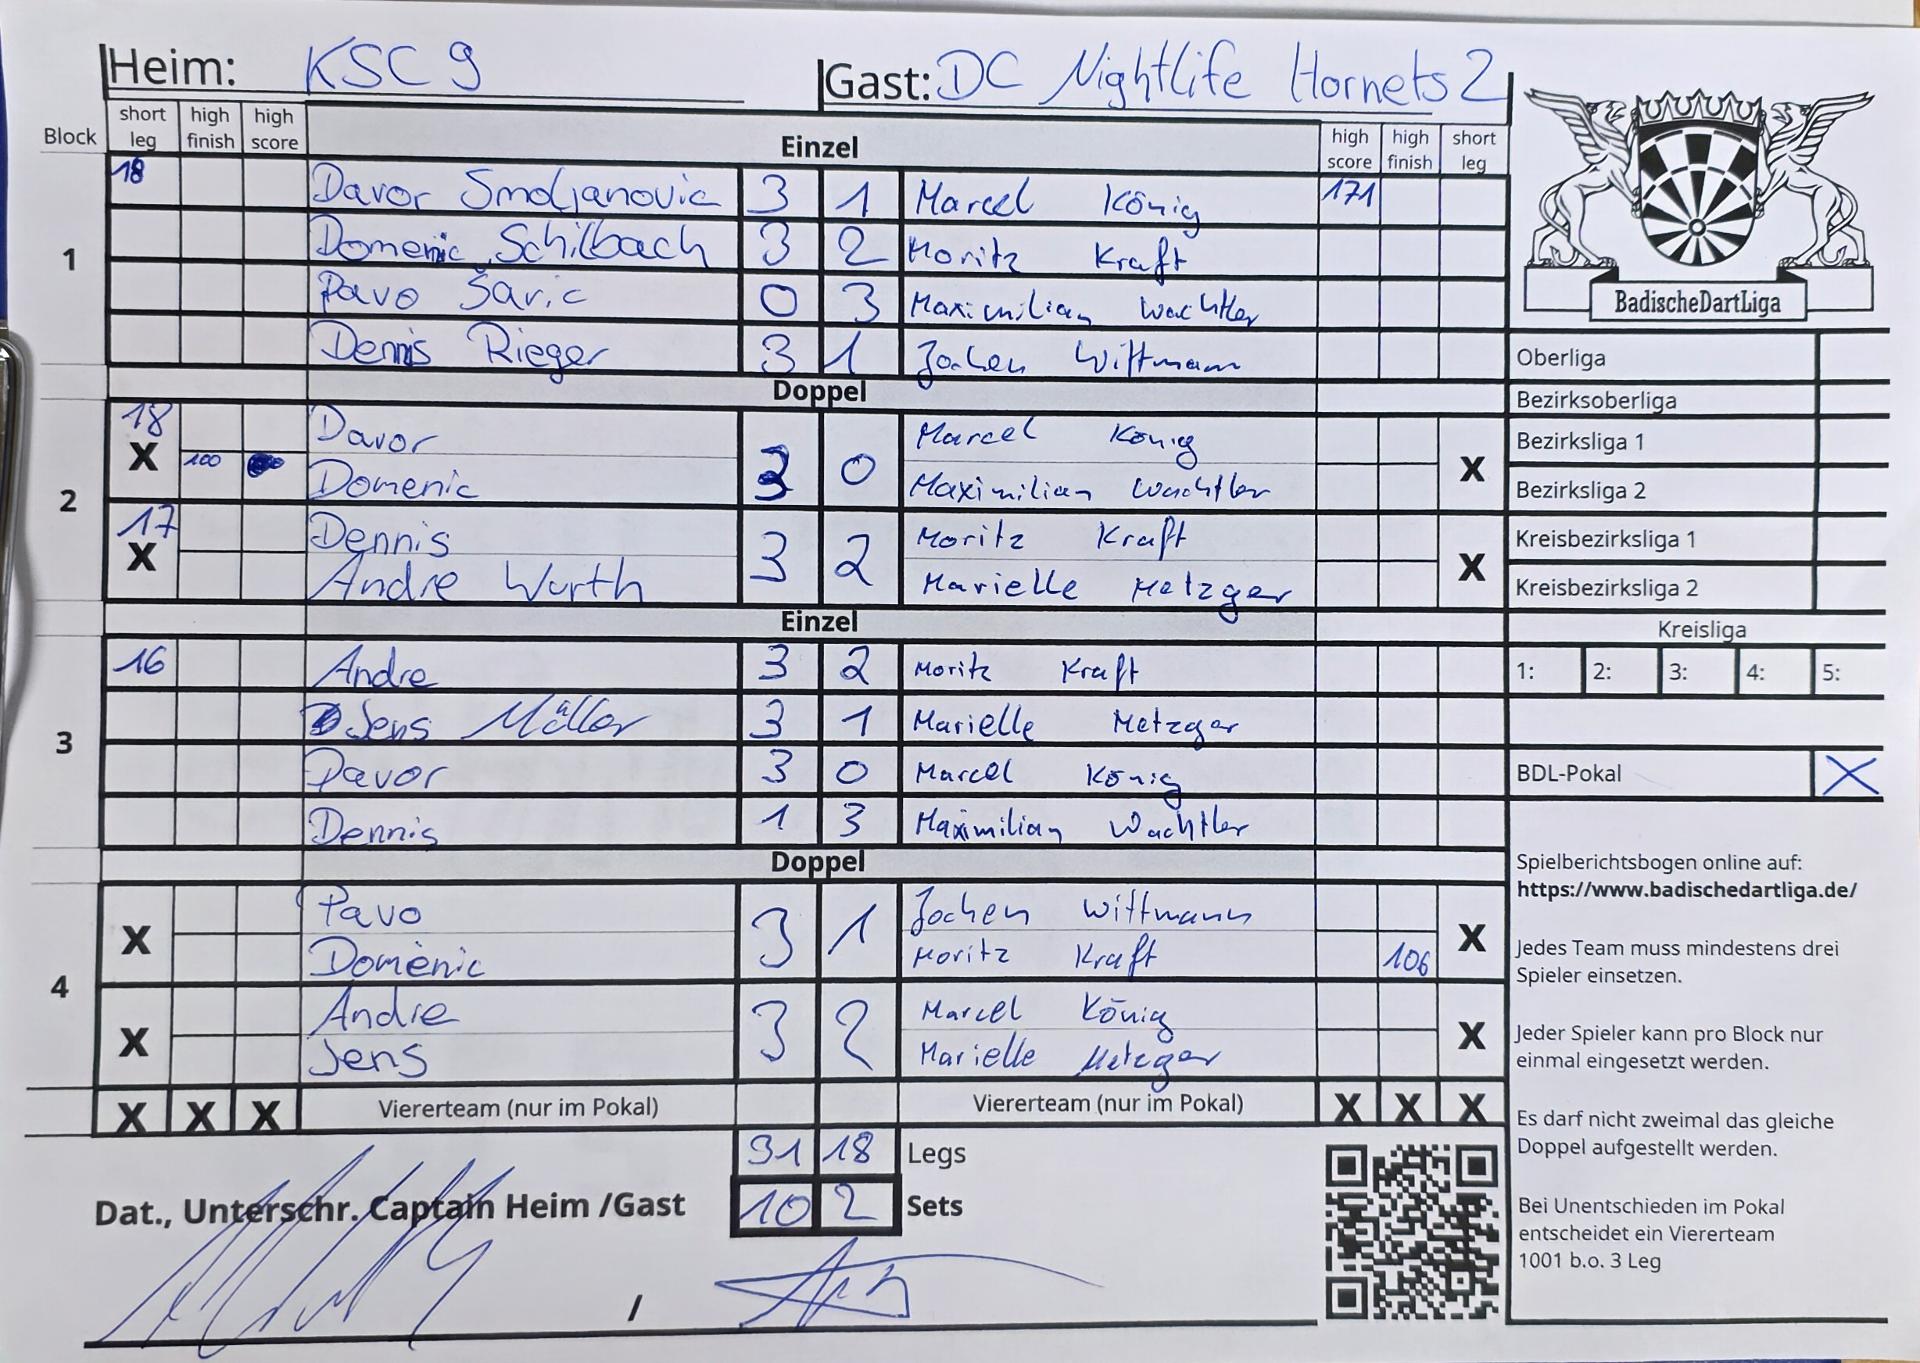 Heim: KSC 9 Gast: DC Nightlife Hornets 2
Block short leg high finish high score Einzel high score high finish short leg
1
18 Davor Smoljanovic 3 1 Marcel König 171
Domenic Schilbach 3 2 Moritz Kraft
Pavo Šaric 0 3 Maximilian Wachtler
Dennis Rieger 3 1 Jochen Wittmann
Doppel
2
18 X Davor 3 0 Marcel König X
100 Domenic Maximilian Wachtler
17 X Dennis 3 2 Moritz Kraft X
Andre Wurth Marielle Metzger
Einzel
3
16 Andre 3 2 Moritz Kraft
Jens Müller 3 1 Marielle Metzger
Davor 3 0 Marcel König
Dennis 1 3 Maximilian Wachtler
Doppel
4
X Pavo 3 1 Jochen Wittmann X
Domenic Moritz Kraft 106
X Andre 3 2 Marcel König X
Jens Marielle Metzger
X X X Viererteam (nur im Pokal) Viererteam (nur im Pokal) X X X
31 18 Legs
Dat., Unterschr. Captain Heim /Gast 10 2 Sets
/
BadischeDartLiga
Oberliga
Bezirksoberliga
Bezirksliga 1
Bezirksliga 2
Kreisbezirksliga 1
Kreisbezirksliga 2
Kreisliga
1: 2: 3: 4: 5:
BDL-Pokal X
Spielberichtsbogen online auf:
https://www.badischedartliga.de/
Jedes Team muss mindestens drei
Spieler einsetzen.
Jeder Spieler kann pro Block nur
einmal eingesetzt werden.
Es darf nicht zweimal das gleiche
Doppel aufgestellt werden.
Bei Unentschieden im Pokal
entscheidet ein Viererteam
1001 b.o. 3 Leg